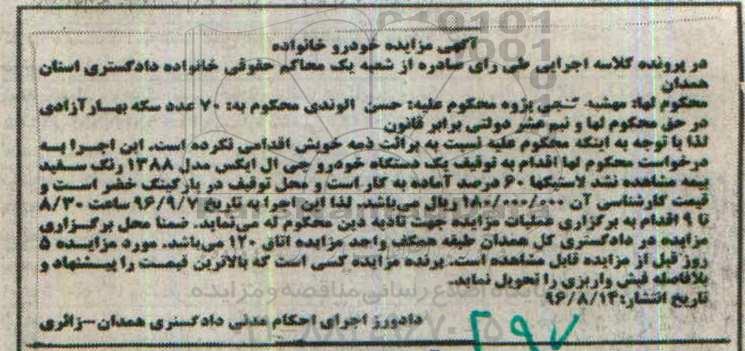 آگهی مزایده خودرو خانواده
در پرونده کلاسه اجرایی طی رای صادره از شعبه یک محاکم حقوقی خانواده دادگستری استان
همدان
محکوم لها: مهشید گنجی پژوه محکوم علیه: حسن الوندی محکوم به: ۷۰ عدد سکه بهار آزادی
در حق محکوم لها و نیم عشر دولتی برابر قانون
لذا با توجه به اینکه محکوم علیه نسبت به برائت ذمه خویش اقدامی نکرده است. این اجرا به
درخواست محکوم لها اقدام به توقیف یک دستگاه خودرو جی ال ایکس مدل ۱۳۸۸ رنگ سفید
بیمه مشاهده نشد لاستیکها ۶۰ درصد آماده به کار است و محل توقیف در پارکینگ خضر است و
قیمت کارشناسی آن ۱۸۰/۰۰۰/۰۰۰ ریال می‌باشد. لذا این اجرا به تاریخ ۹۶/۹/۷ ساعت ۸/۳۰
تا ۹ اقدام به برگزاری عملیات مزایده جهت تادیه دین محکوم له می‌نماید. ضمنا محل برگزاری
مزایده در دادگستری کل همدان طبقه همکف واحد مزایده اتاق ۱۲۰ می‌باشد. مورد مزایده ۵
روز قبل از مزایده قابل مشاهده است. برنده مزایده کسی است که بالاترین قیمت را پیشنهاد و
بلافاصله فیش واریزی را تحویل نماید.
تاریخ انتشار: ۹۶/۸/۱۴
دادورز اجرای احکام مدنی دادگستری همدان - زائری
۲۹۷